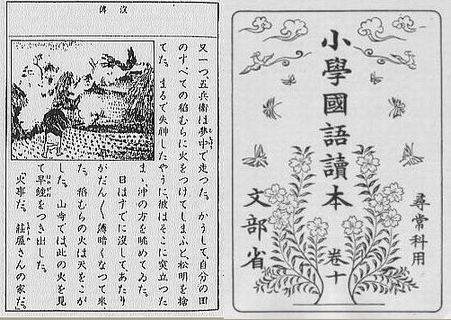 尋常科用
小學國語讀本
卷十
文部省
又一つ、五兵衛は夢中で走つた。かうして、自分の田
のすべての稻むらに火をつけてしまふと、松明を捨
てた。まるで失神したやうに、彼はそこに突立つた
まゝ、沖の方を眺めてゐた。
日はすでに沒してあたり
がだん〳〵薄暗くなつて來
た。稻むらの火は天をこが
した。山寺では此の火を見
て早鐘をつき出した。
「火事だ。莊屋さんの家だ。」